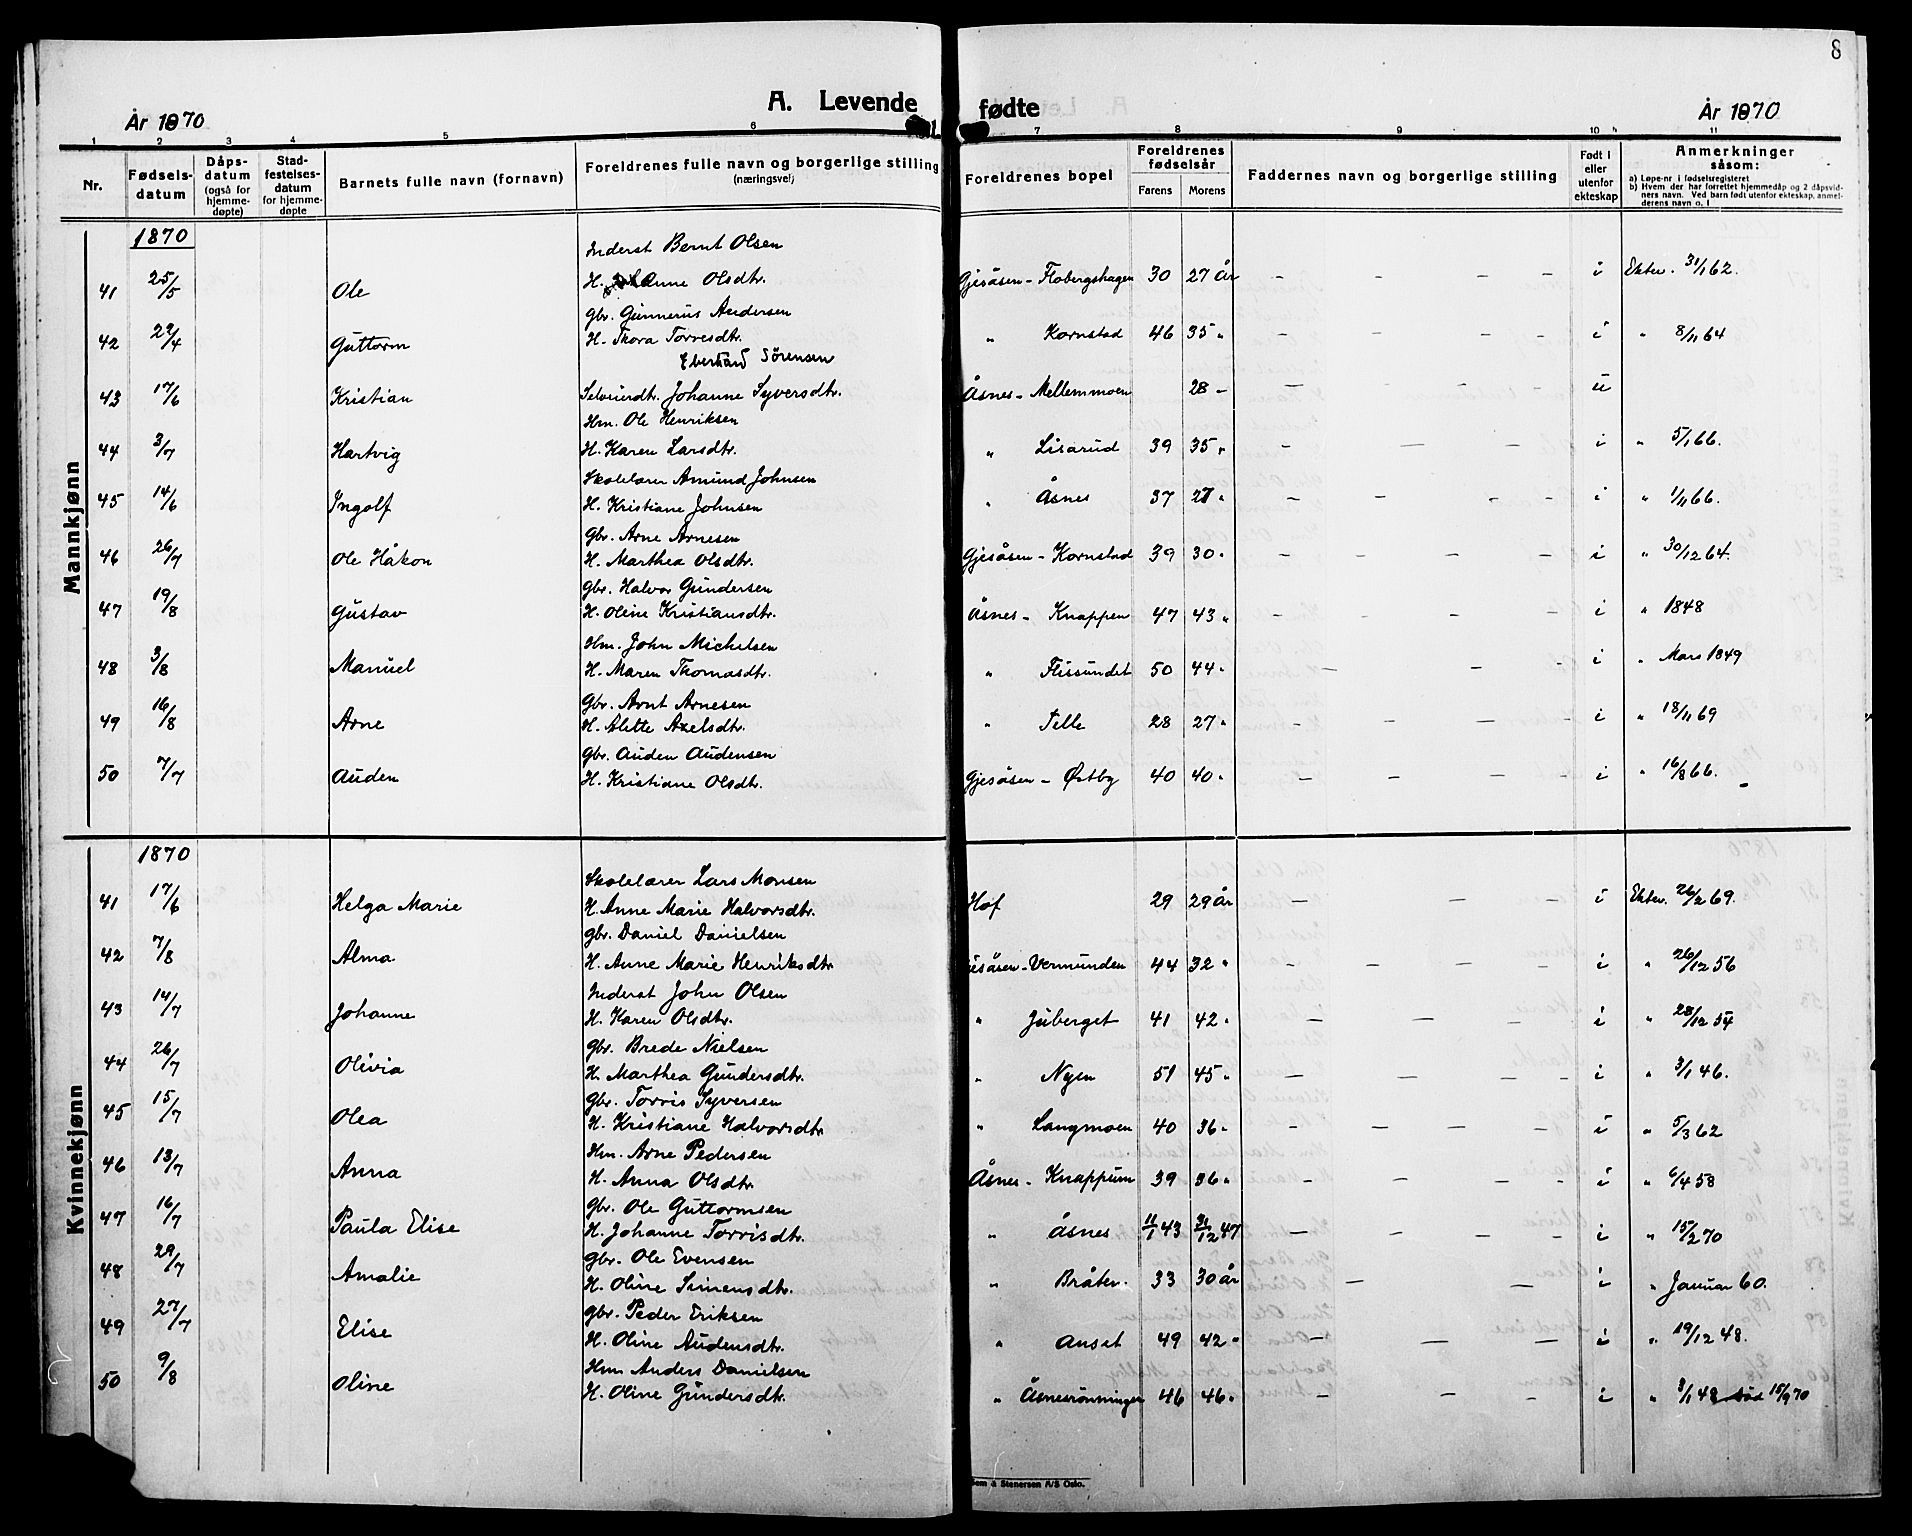 8
A. Levende fødte
År 1870
År 1870
1 2 3 4 5 6 7 8 9 10 11
Nr.
Fødsels-
datum
Dåps-
datum
(også for
hjemme-
døpte)
Stad-
festelses-
datum
for hjemme-
døpte
Barnets fulle navn (fornavn)
Foreldrenes fulle navn og borgerlige stilling
(næringsvei)
Foreldrenes bopel
Foreldrenes
fødselsår
Farens Morens
Faddernes navn og borgerlige stilling
Født i
eller
utenfor
ekteskap
Anmerkninger
såsom:
a) Løpe-nr i fødselsregisteret
b) Hvem der har forrettet hjemmedåp og 2 dåpsvid-
ners navn. Ved barn født utenfor ekteskap, anmel-
derens navn o. l
Mannkjønn
1870
Inderst Bernt Olsen
41 25/5 Ole H. Anne Olsdtr. Gjesåsen - Flobergshagen 30 27 år - - - - i Ektev. 31/1 62.
gbr. Gunnerius Andersen
42 29/4 Guttorm H. Thora Torresdtr. " Kornstad 46 35 " - - - - i " 8/11 64
Eberhard Sörensen
43 17/6 Kristian Selveierdtr. Johanne Syversdtr. Åsnes - Mellemmoen 28 - - - - - u
Hm. Ole Henriksen
44 3/7 Hartvig H. Karen Larsdtr. " Lisarud 39 35 " - - - - i " 5/1 66.
Skolelærer Amund Johnsen
45 14/6 Ingolf H. Kristiane Johnsen " Åsnes 37 27 " - - - - i " 1/11 66.
gbr. Arne Arnesen
46 26/7 Ole Håkon H. Marthea Olsdtr. Gjesåsen - Kornstad 39 30 " - - - - i " 30/12 64.
gbr. Halvor Gundersen
47 19/8 Gustav H. Oline Kristiansdtr. Åsnes - Knappen 47 43 " - - - - i " 1848
Hm. John Michelsen
48 3/8 Manuel H. Maren Thomasdtr. " Flissundet 50 44 " - - - - i " Mars 1849
Gbr. Arnt Arnesen
49 16/8 Arne H. Alette Axelsdtr. " Telle 28 27 " - - - - i " 18/11 69
gbr. Auden Audensen
50 7/7 Auden H. Kristiane Olsdtr. Gjesåsen - Østby 40 40 " - - - - i " 16/8 66.
Kvinnekjønn
1870
Skolelærer Lars Monsen
41 17/6 Helga Marie H. Anne Marie Halvorsdtr. Hof 29 29 år - - - - i Ektev. 26/2 69.
gbr. Daniel Danielsen
42 7/8 Alma H. Anne Marie Henriksdtr jesåsen - Vermunden 44 32 " - - - - i " 26/12 56
Inderst John Olsen
43 14/7 Johanne H. Karen Olsdtr. " Juberget 41 42 " - - - - i " 28/12 54
gbr. Brede Nielsen
44 26/7 Olivia H. Marthea Gundersdtr. " Nyen 51 45 " - - - - i " 3/1 46.
gbr. Torris Syversen
45 15/7 Olea H. Kristiane Halvorsdtr " Langmoen 40 36 " - - - - i " 5/3 62
Hm. Arne Pedersen
46 13/7 Anna H. Anna Olsdtr. Åsnes - Knappum 39 36 " - - - - i " 6/4 58
gbr. Ole Guttormsen
47 16/7 Paula Elise H. Johanne Torrisdtr. " Åsnes 11/1 43 31/12 47 - - - - i " 15/2 70
gbr. Ole Evensen
48 29/7 Amalie H. Oline Simensdtr. " Bråten 33 30 år - - - i " Januar 60.
gbr. Peder Eriksen
49 27/7 Elise H. Oline Audensdtr. " Anset 49 42 " - - - i " 19/12 48.
Hm Anders Danielsen
50 9/8 Oline H. Oline Gundersdtr. " Åsnesrönningen 46 46 " - - - - i " 3/1 48 död 15/9 70
Sem & Stenersen A/S Oslo.